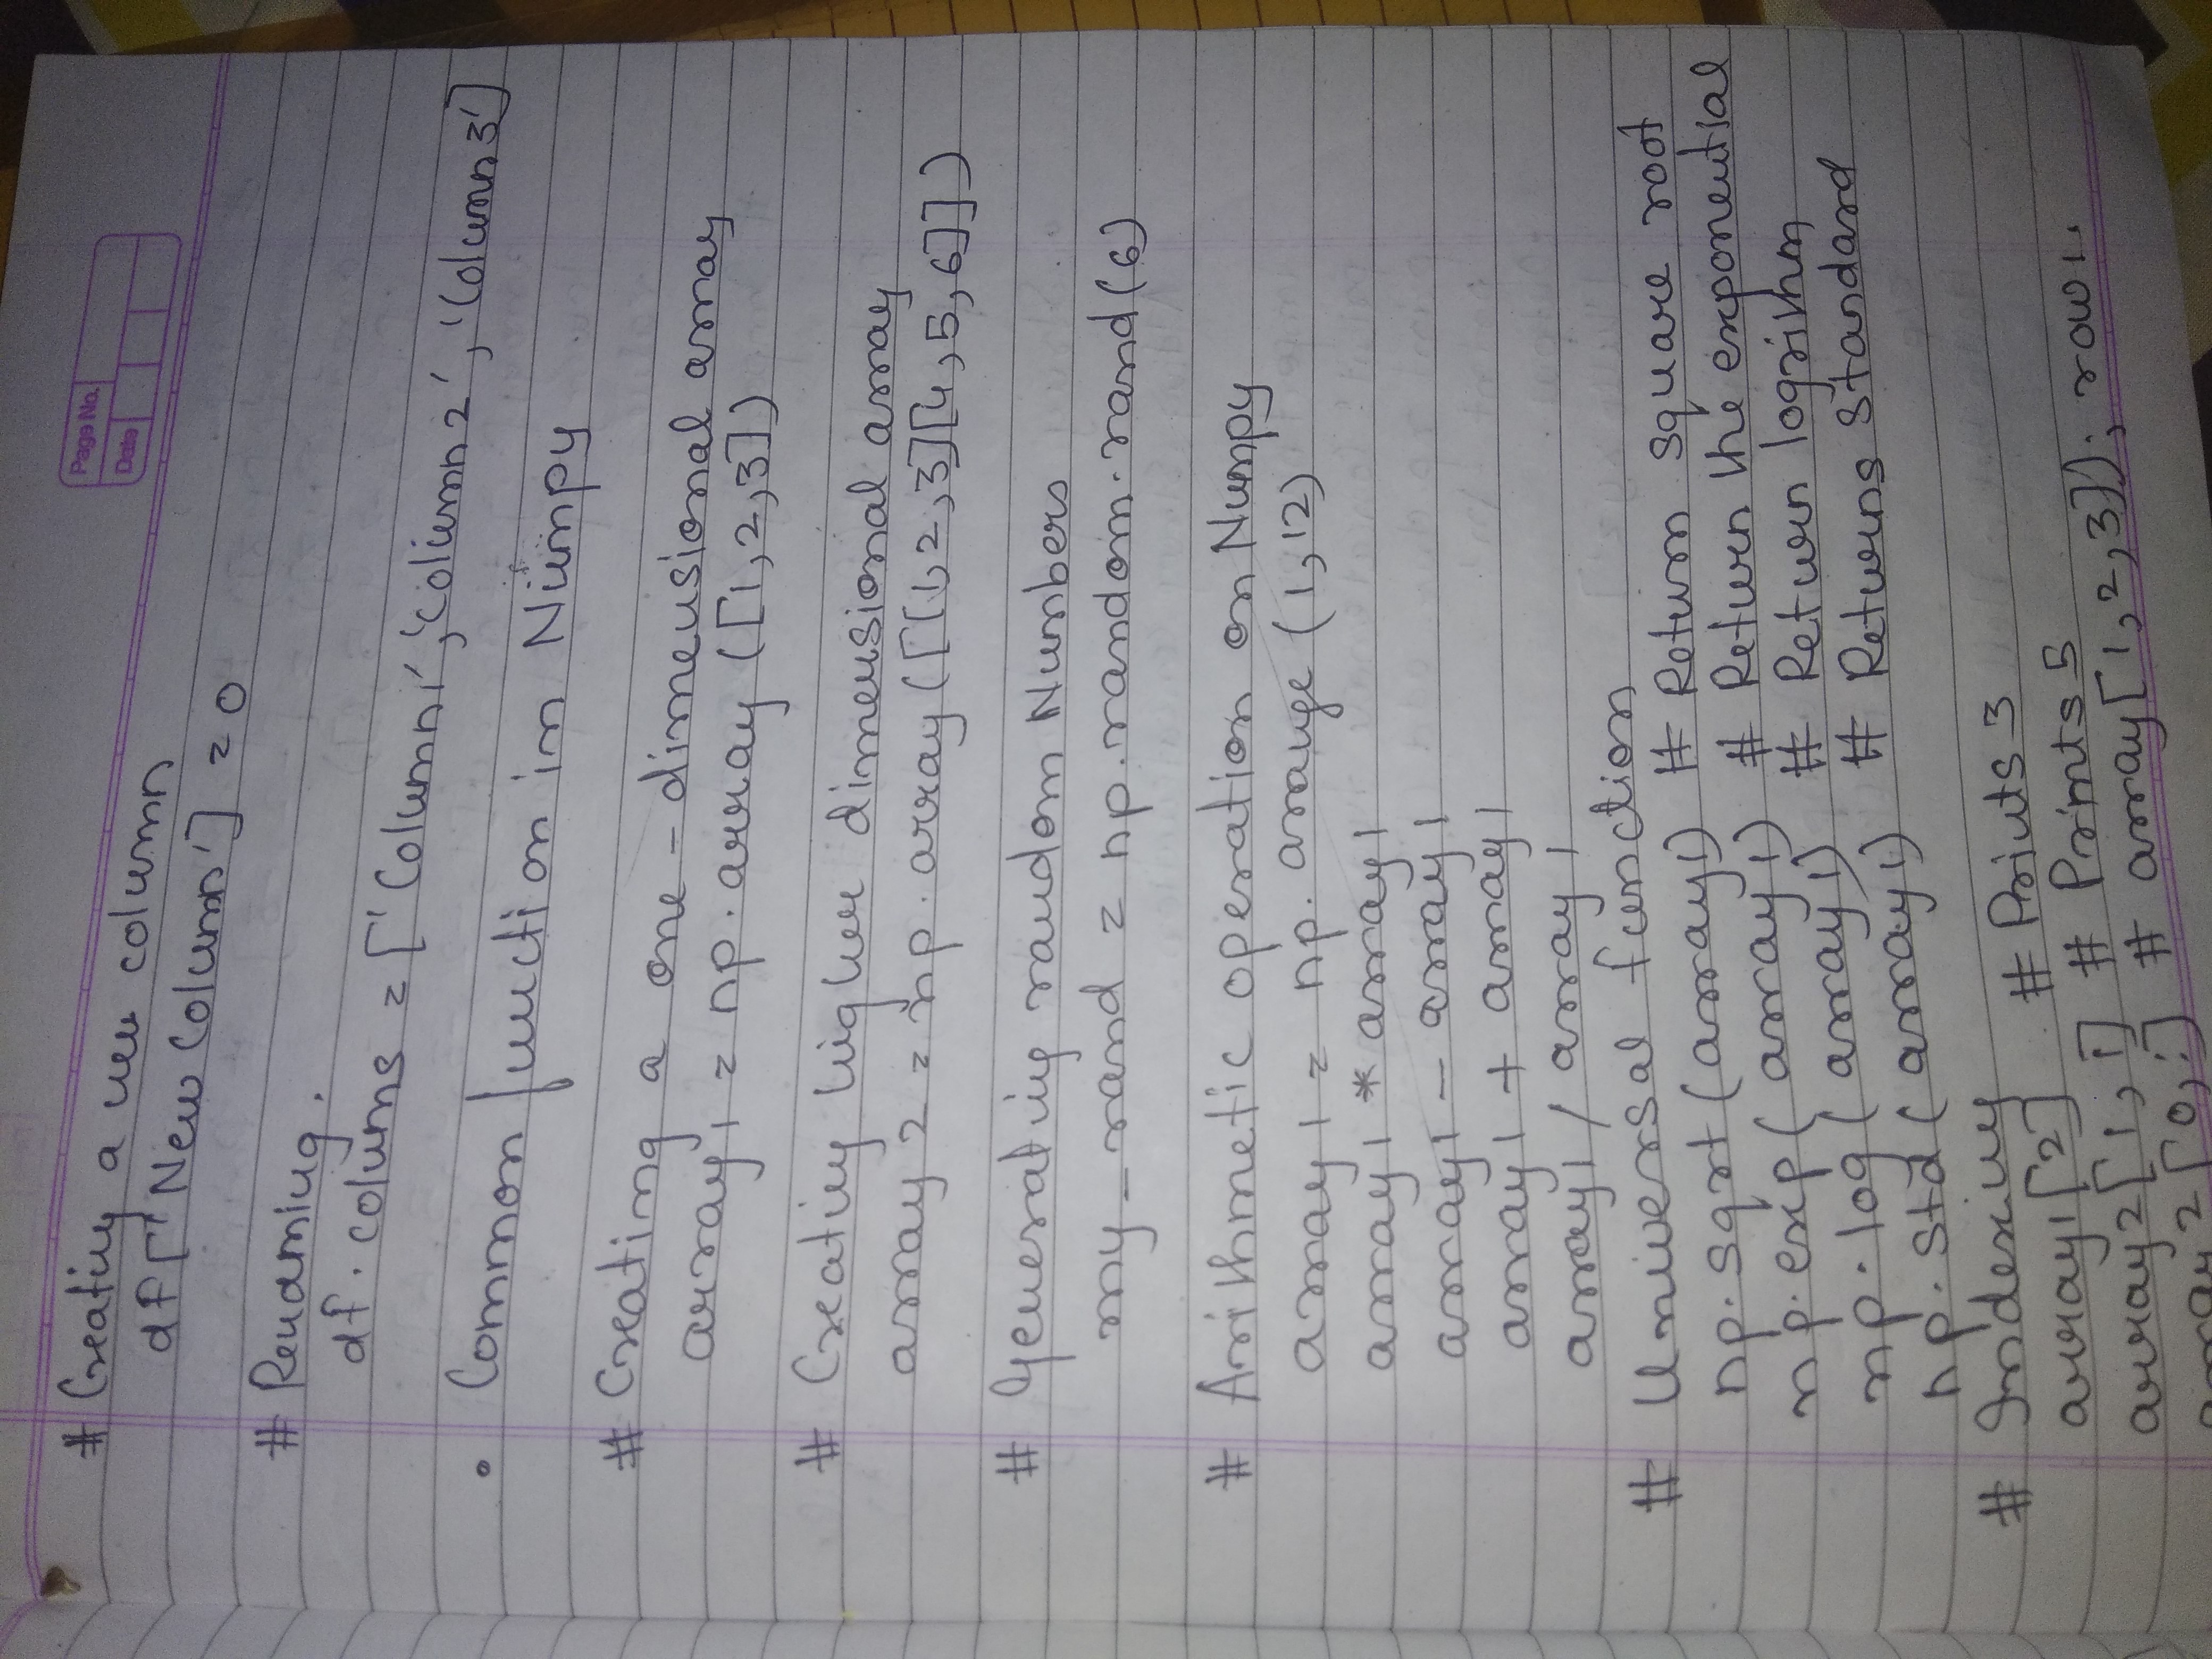 Page No.
Date
# Creating a new column
df['New Column'] = 0
# Renaming.
df.colums = ['Column1','Column2','Column3']
• Common function in Numpy
# Creating a one-dimensional array
array1 = np.array([1,2,3])
# Creating higher dimensional array
array2 = np.array([[1,2,3][4,5,6]])
# Generating random Numbers
my_rand = np.random.rand(6)
# Arithmetic operation on Numpy
array1 = np.arange(1,12)
array1 * array1
array1 - array1
array1 + array1
array1 / array1
# Universal function
np.sqrt(array1) # Return square root
np.exp(array1) # Return the exponential
np.log(array1) # Return logrithm
np.std(array1) # Returns standard
# Indexing
array1[2] # Prints 3
array2[1,1] # Prints 5
array2[0,:] # array[1,2,3]); row 1.